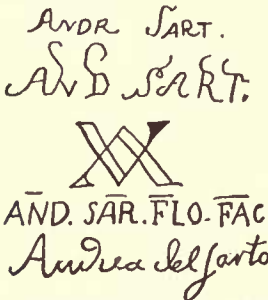 ANDR SART.
AND SART.
AND. SAR. FLO-FAC
Andrea del Sarto